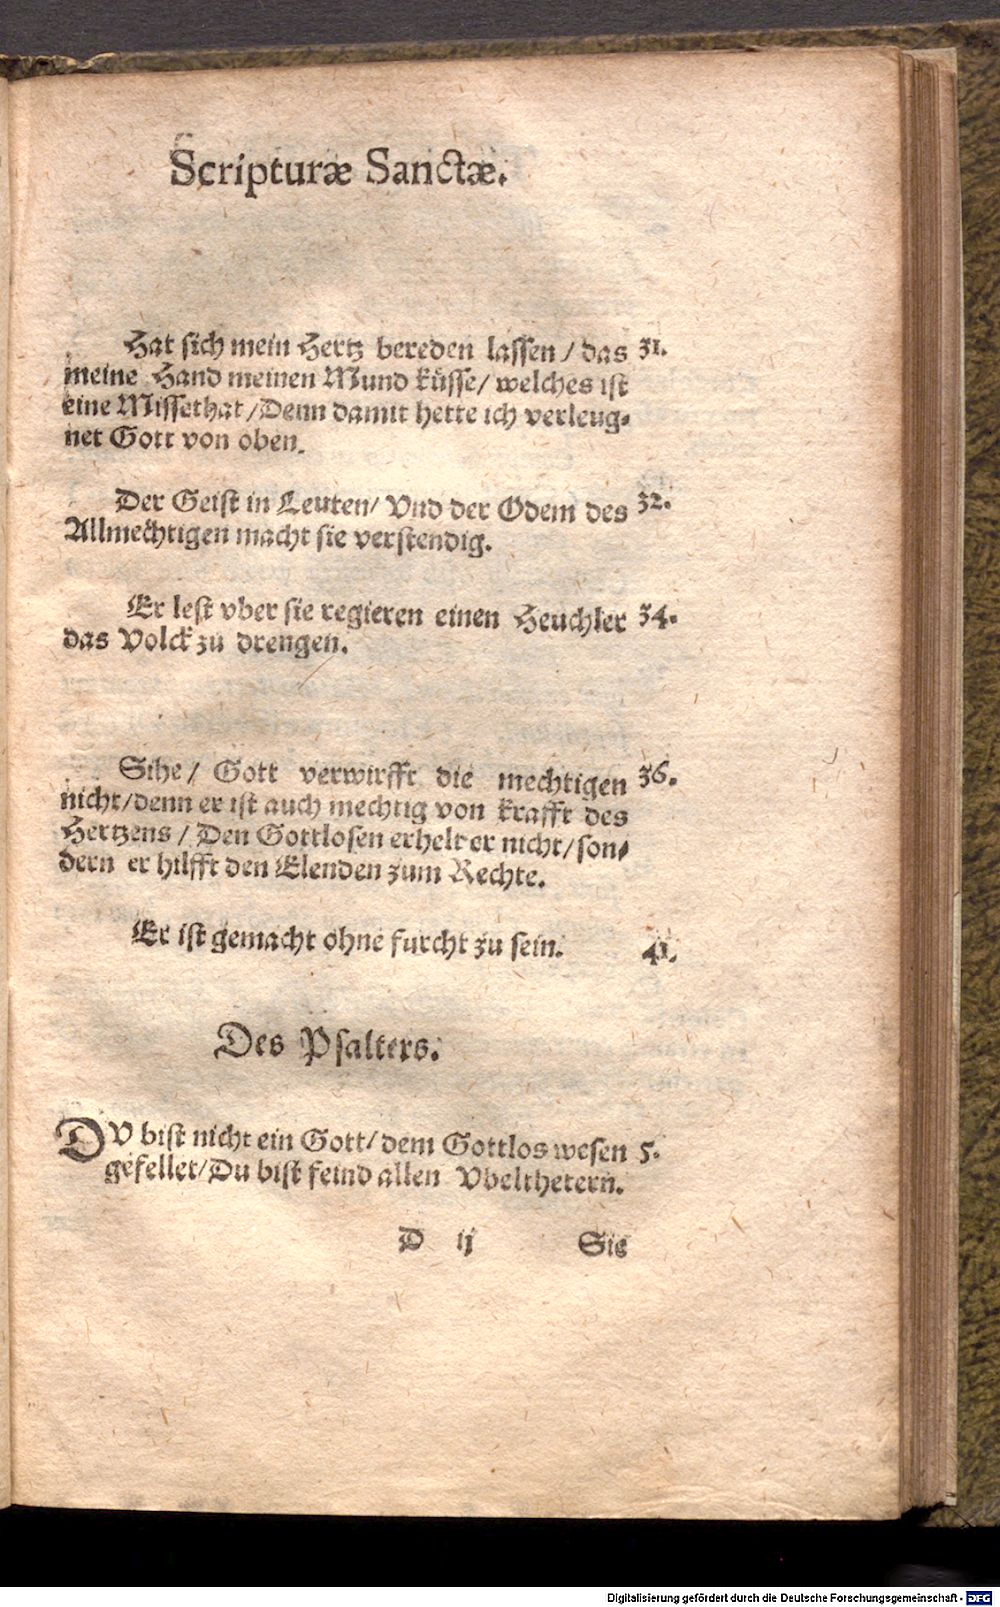 Scripturæ Sanctæ.
Hat sich mein Hertz bereden lassen / das 31.
meine Hand meinen Mund küsse/ welches ist
eine Missethat /Denn damit hette ich verleug-
net Gott von oben.
Der Geist in Leuten/ Vnd der Odem des 32.
Allmechtigen macht sie verstendig.
Er lest vber sie regieren einen Heuchler 34.
das Volck zu drengen.
Sihe / Gott verwirfft die mechtigen 36.
nicht/denn er ist auch mechtig von krafft des
Hertzens / Den Gottlosen erhelt er nicht/ son-
dern er hilfft den Elenden zum Rechte.
Er ist gemacht ohne furcht zu sein. 41.
Des Psalters.
DV bist nicht ein Gott/ dem Gottlos wesen 5.
gefellet/Du bist feind allen Vbelthetern.
D ij Sie
Digitalisierung gefördert durch die Deutsche Forschungsgemeinschaft - DFG